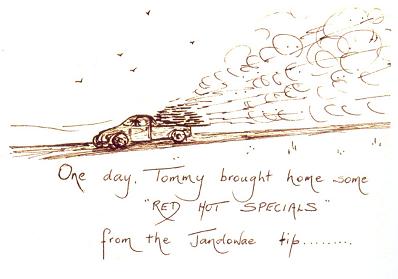 One day, Tommy brought home some
"RED HOT SPECIALS"
from the Jandowae tip.........